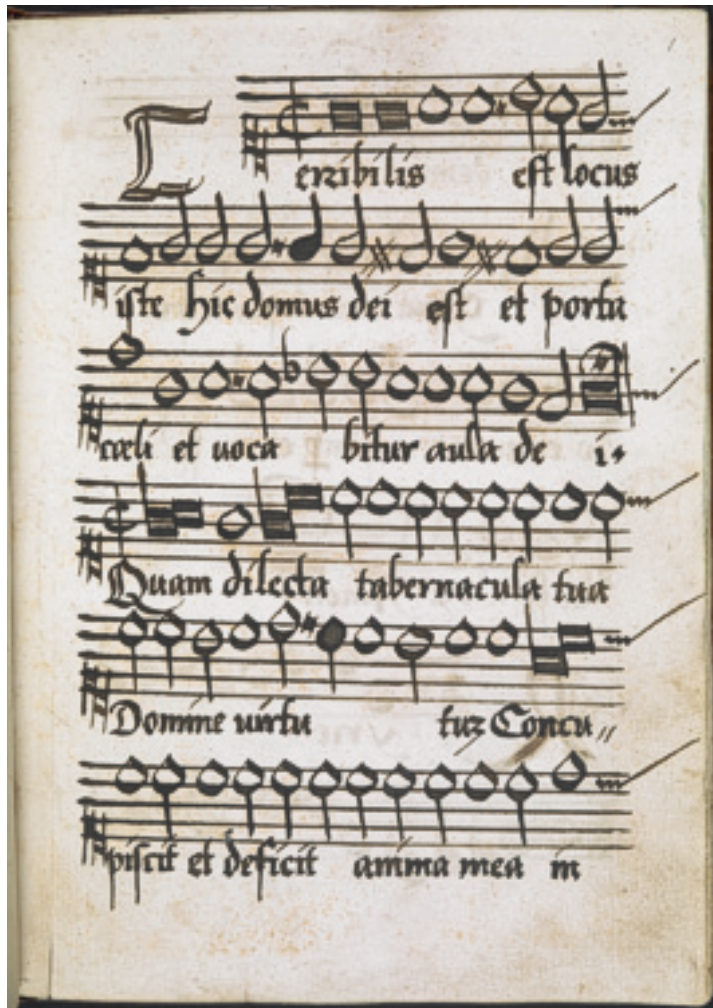 Terribilis est locus
iste hic domus dei est et porta
cæli et uoca bitur aula de i.
Quam dilecta tabernacula tua
Domine uirtu tuz Concu„
piscit et deficit anima mea in